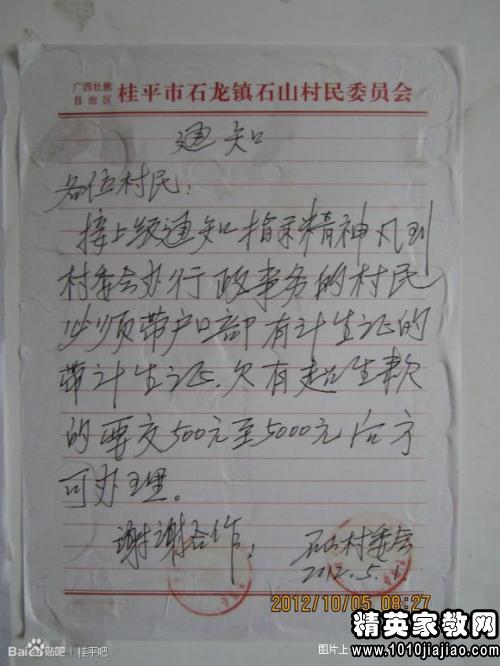 广西壮族
自治区 桂平市石龙镇石山村民委员会
通知
各位村民：
接上级通知指示精神凡到
村委会办行政事务的村民
必须带户口部有计生证的
带计生证．欠有超生款
的要交500元至5000元后方
可办理。
谢谢合作，
石山村委会
2012.5.1.
2012/10/05 08:27
Bai贴吧 | 桂平吧
图片上
精英家教网
www.1010jiajiao.com